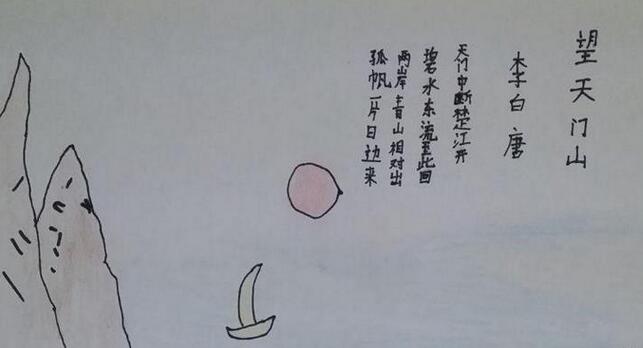 望天门山
李白唐
天门中断楚江开
碧水东流至此回
两岸青山相对出
孤帆一片日边来